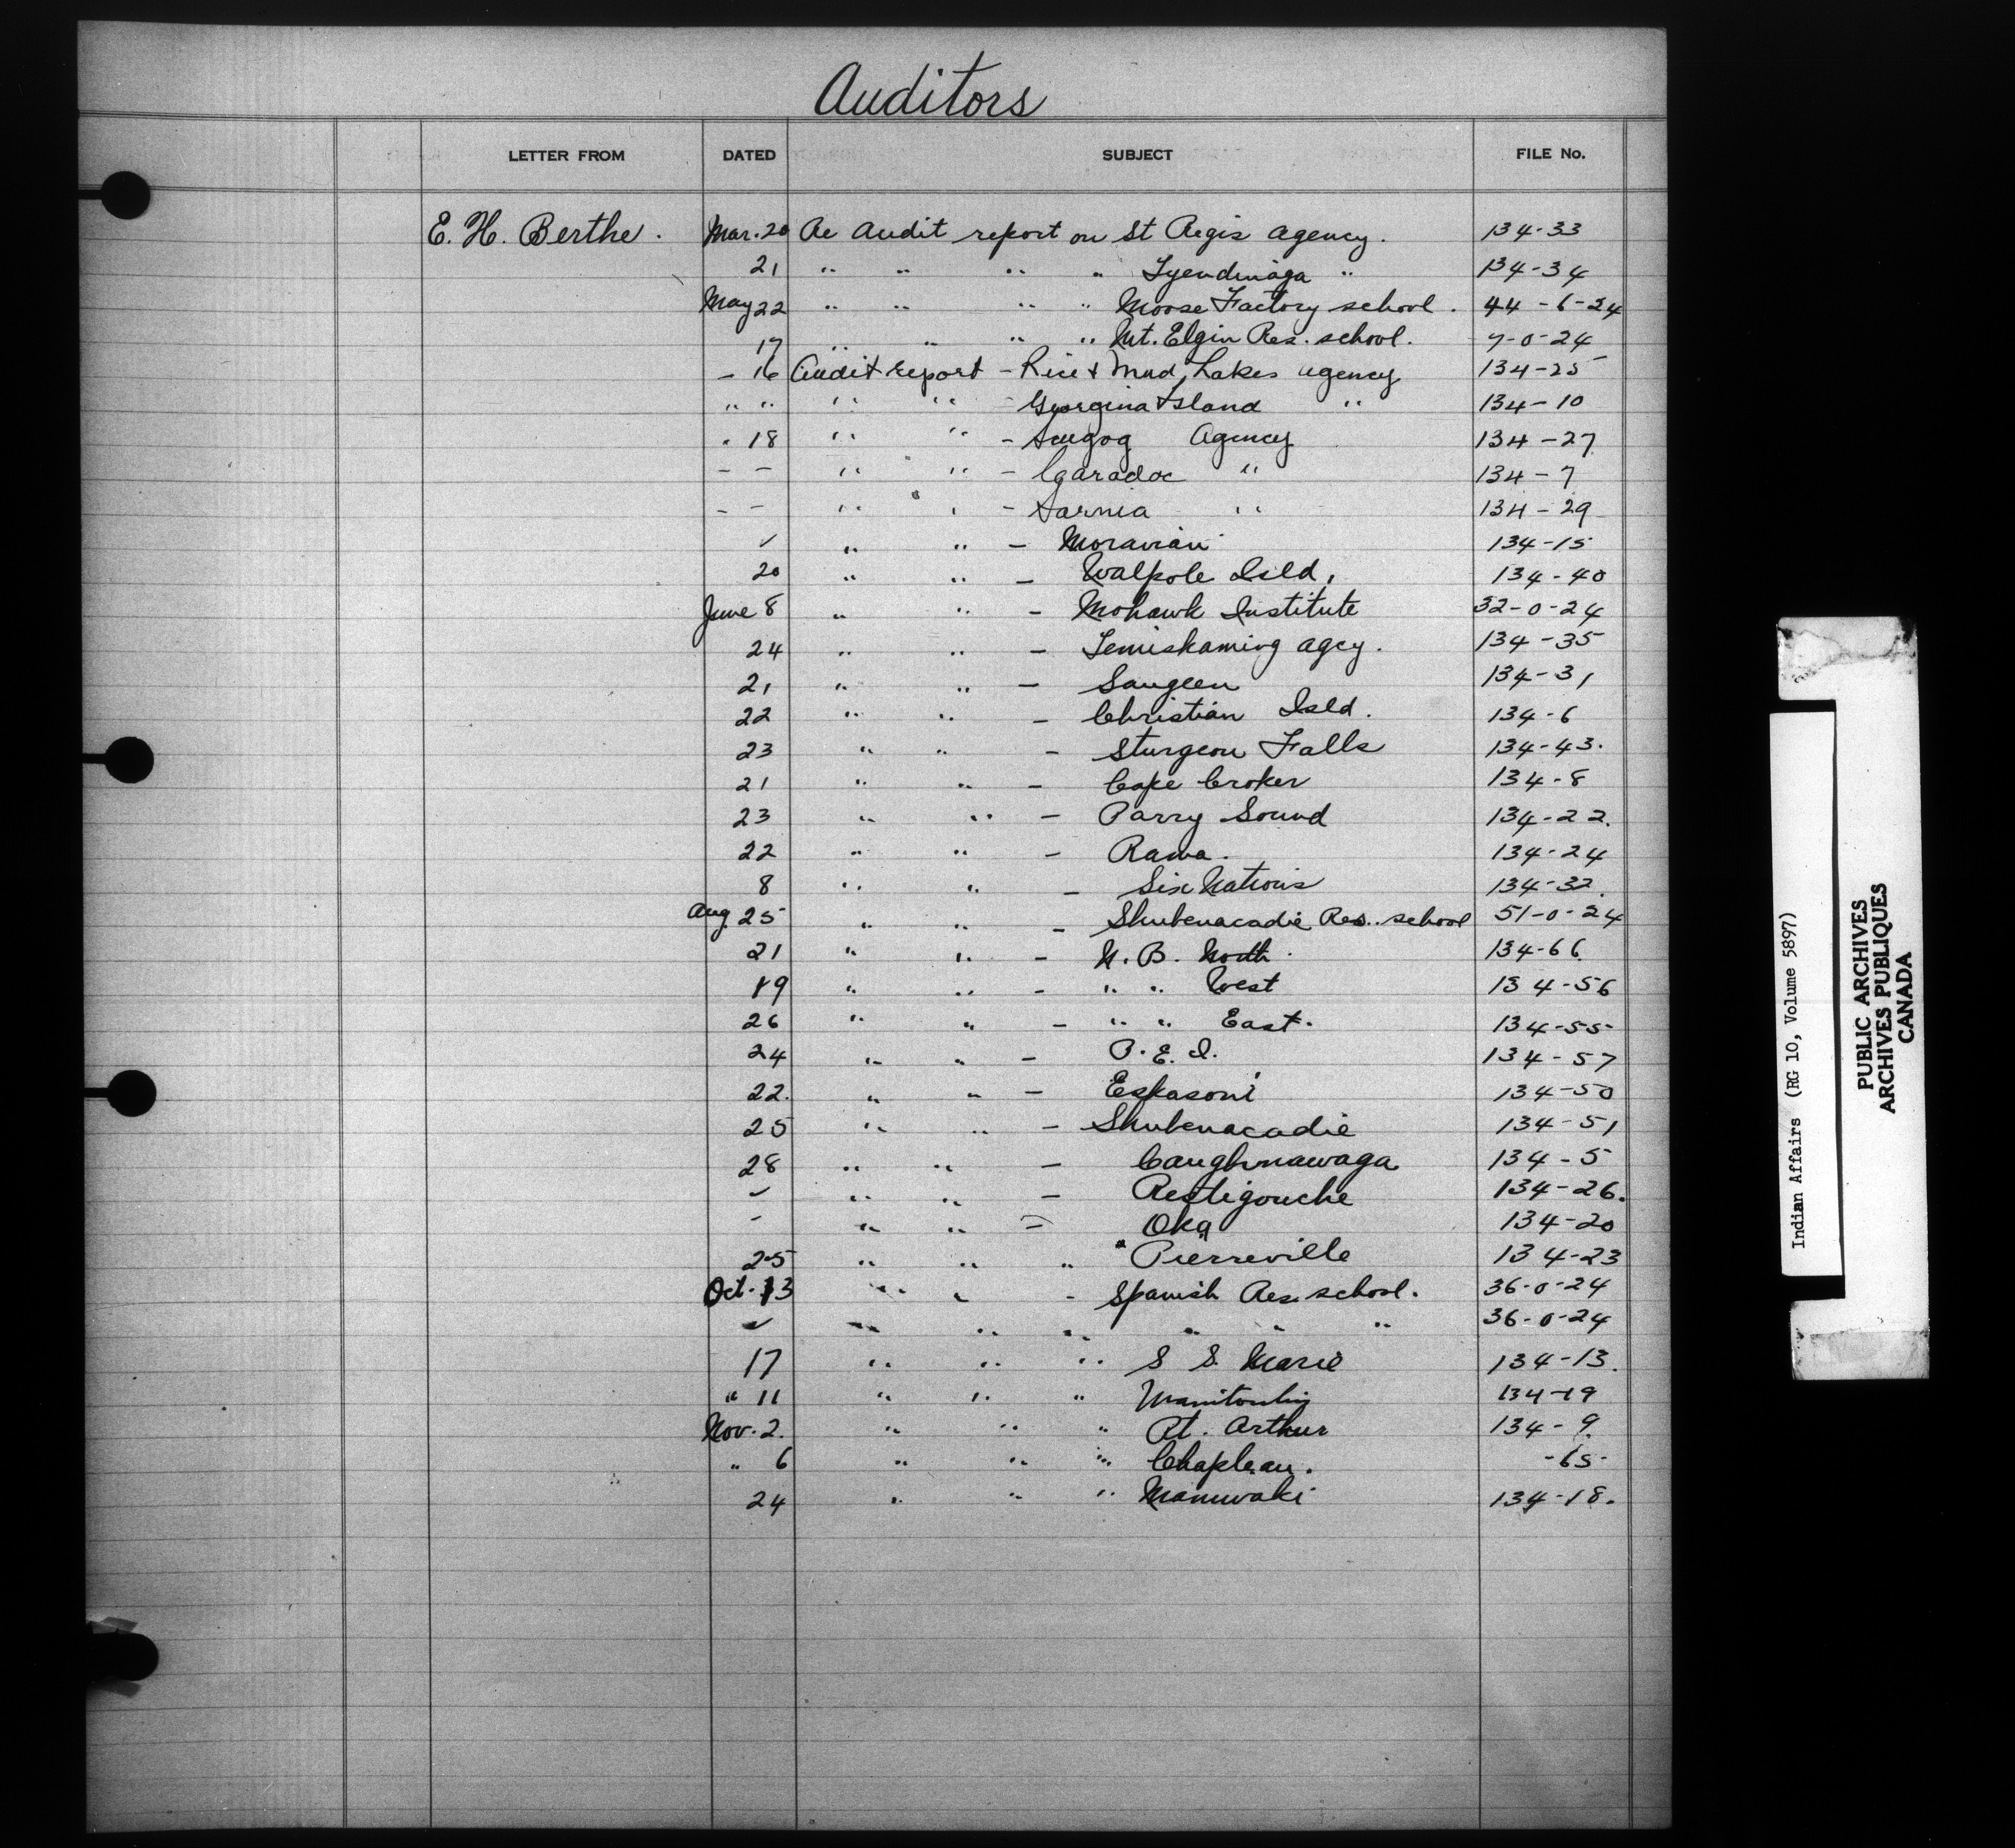 Auditors
LETTER FROM DATED SUBJECT FILE No.
E. H. Berthe. Mar. 20 Re Audit report on St Regis Agency. 134-33
21 " " " " Tyendinaga " 134-34
May 22 " " " " Moose Factory school. 44-6-24
17 " " " " Mt. Elgin Res. school. 7-0-24
- 16 Audit report - Rice & Mud Lakes agency 134-25
" " " " Georgina Island " 134-10
" 18 " " - Scugog Agency 134-27
- - " " - Caradoc " 134-7
- - " " - Sarnia " 134-29
✓ " " - Moravian 134-15
20 " " - Walpole Isld. 134-40
June 8 " " - Mohawk Institute 32-0-24
24 " " - Temiskaming agcy. 134-35
21 " " - Saugeen 134-31
22 " " - Christian Isld. 134-6
23 " " - Sturgeon Falls 134-43.
21 " " - Cape Croker 134-8
23 " " - Parry Sound 134-22.
22 " " - Rama. 134-24
8 " " - Six Nations 134-32.
Aug. 25 " " - Shubenacadie Res. school 51-0-24
21 " " - N. B. North. 134-66.
19 " " - " " West 134-56
26 " " - " " East. 134-55
24 " " - P. E. I. 134-57
22. " " - Eskasoni 134-50
25 " " - Shubenacadie 134-51
28 " " - Caughnawaga 134-5
✓ " " - Restigouche 134-26.
- " " - Oka 134-20
25 " " " " Pierreville 134-23
Oct. 13 " " - Spanish Res. school. 36-0-24
✓ " " " " " " 36-0-24
17 " " " S S. Marie 134-13.
" 11 " " " Manitoulin 134-19
Nov. 2. " " " Pt. Arthur 134-9.
" 6 " " " Chapleau. -65-
24 " " " Maniwaki 134-18.
Indian Affairs (RG 10, Volume 5897)
PUBLIC ARCHIVES
ARCHIVES PUBLIQUES
CANADA